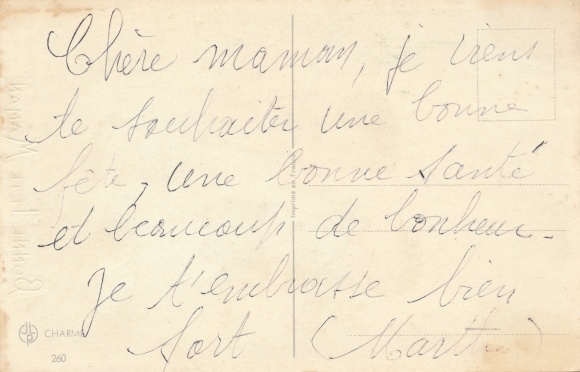 Chère maman, je viens
te souhaiter une bonne
fête, une bonne santé
et beaucoup de bonheur.
Je t'embrasse bien
fort (Marthe)
Imprimé en
CHARME
260